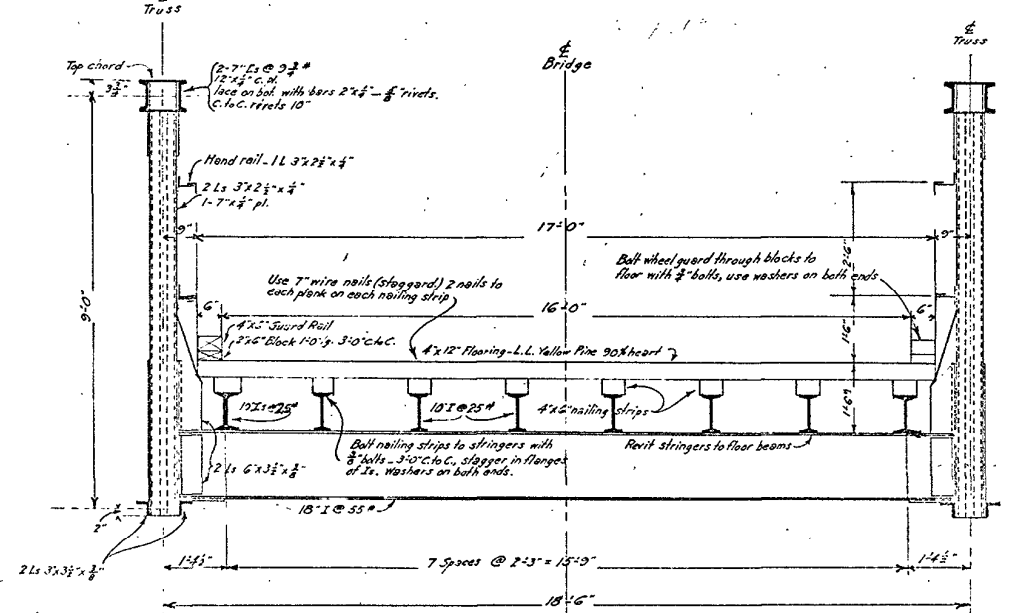 ℄
Truss
℄
Bridge
℄
Truss
Top chord
2-7" [s @ 9 3/4 #
12"x1/4" c. pl.
lace on bot. with bars 2"x1/4" - 5/8" rivets.
c. to c. rivets 10"
Hand rail - 1 L 3"x2 1/2"x1/4"
2 Ls 3"x2 1/2"x1/4"
1-7"x1/4" pl.
9"
17'-0"
9"
9'-0"
2'-6"
Bolt wheel guard through blocks to
floor with 3/4" bolts, use washers on both ends
Use 7" wire nails (staggard) 2 nails to
each plank on each nailing strip
6"
16'-0"
6"
Guard Rail
2"x6" Block 1'-0" lg. 3'-0" C. to C.
4"x12" Flooring - L.L. Yellow Pine 90% heart
1'-6"
1'-6"
10" Is @ 25#
10" I @ 25#
4"x6" nailing strips
Bolt nailing strips to stringers with
bolts - 3'-0" C. to C., stagger in flanges
of Is. Washers on both ends.
Revit stringers to floor beams
2 Ls 6"x3 1/2"x3/8"
18" I @ 55#
2"
2 Ls 3"x3 1/2"x3/8"
1'-4 1/2"
7 Spaces @ 2'-3" = 15'-9"
1'-4 1/2"
18'-6"